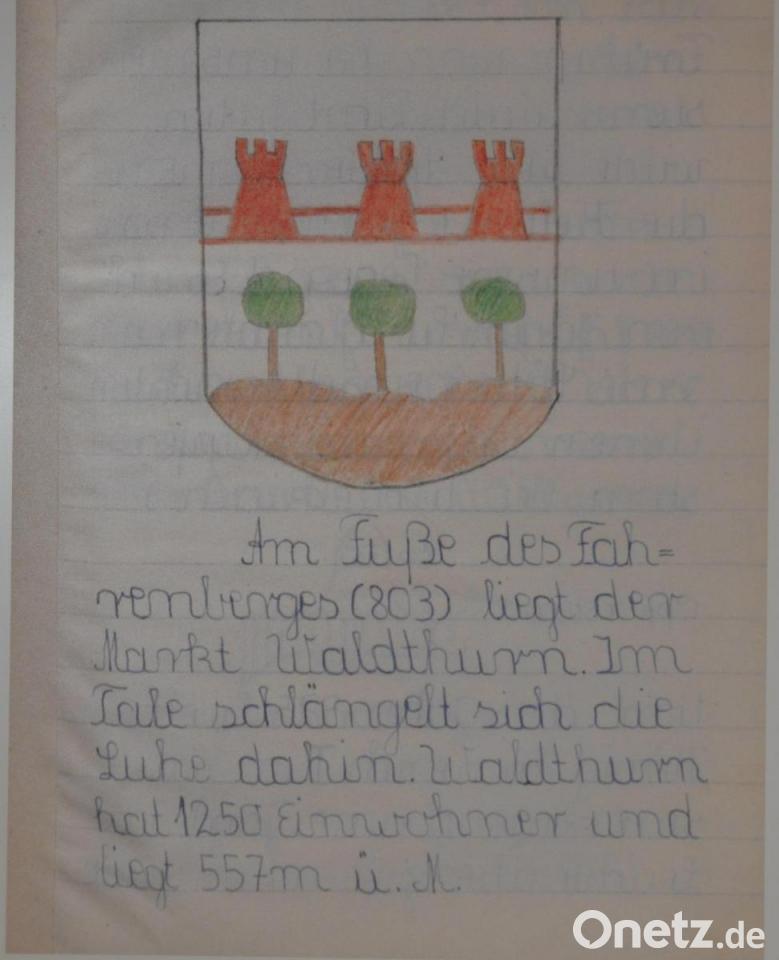 Am Fuße des Fah=
renberges (803) liegt der
Markt Waldthurn. Im
Tale schlängelt sich die
Luhe dahin. Waldthurn
hat 1250 Einwohner und
liegt 557m ü. M.
Onetz.de